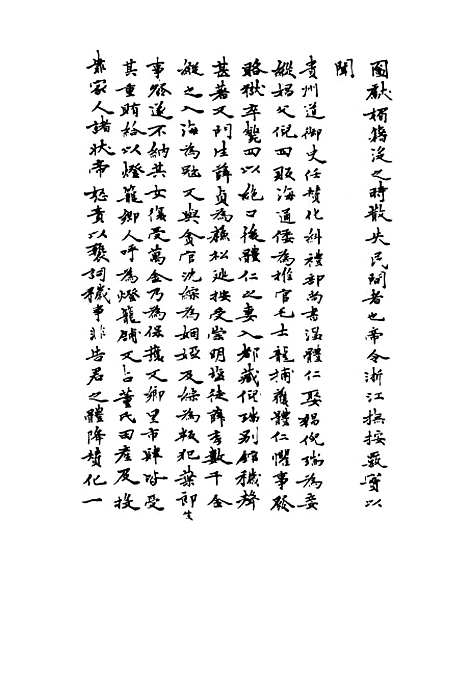 園獻檟籍沒之時散失民間者也帝令浙江撫按嚴覈以
聞
貴州道御史任贊化糾禮部尚書溫體仁娶娼倪瑞為妾
縱娼父倪四販海通倭為推官毛士龍捕獲體仁懼事發
賂獄卒斃四以絕口後體仁之妻入都藏倪瑞別館穢聲
甚著又門生薛貞為蘇松巡按受崇明鹽徒薛孝數千金
縱之入海為盜又與貪官沈綜為姻婭及綜為叛犯葉郎生
事發遂不納其女復受萬金乃為保護又鄉里市肆皆受
其重賄給以燈籠鄉人呼為燈籠舖又占董氏田產及投
靠家人諸狀帝怒責以褻詞穢事非告君之體降贊化一